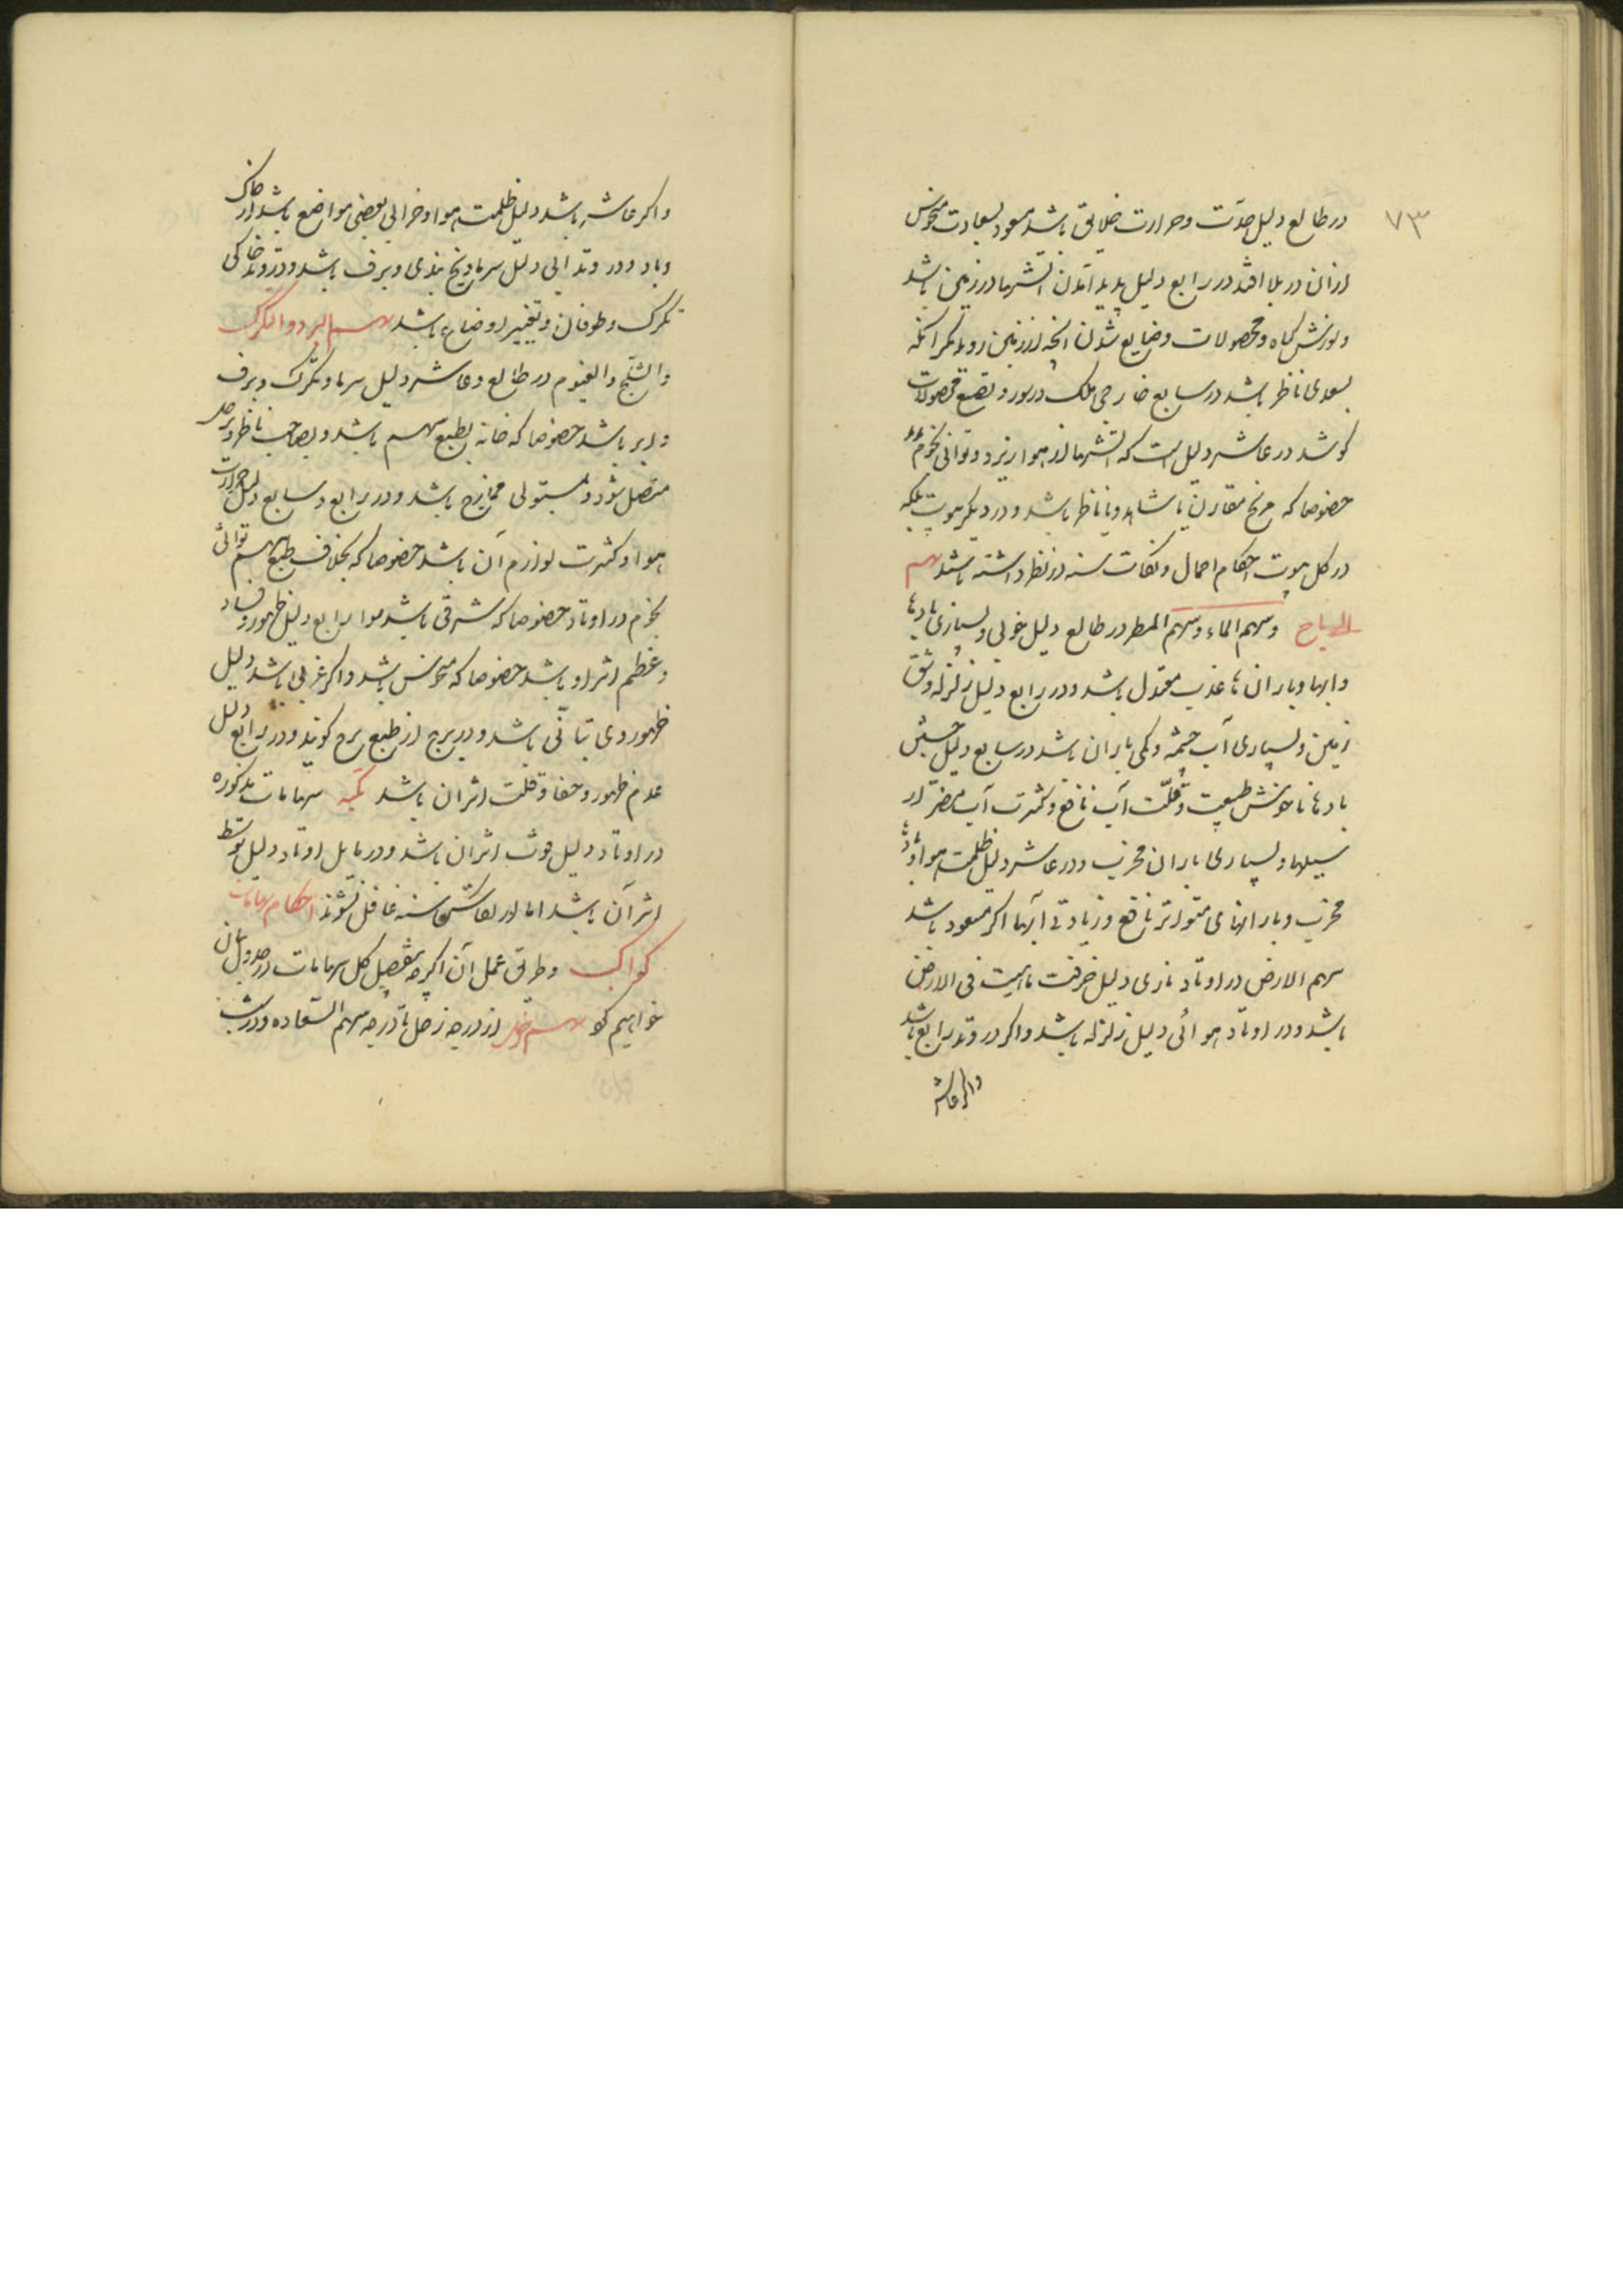 ۷۳
در طالع دلیل حدّت و حرارت خلایق باشد مسعود بسعادت منحوس
از ان در بلا افتد در رابع دلیل پدید آمدن آتشها در زمین باشد
و کیاه و محصولات و ضایع شدن انچه از زمین روید مکر انکه
بسعدی ناظر باشد در سابع خارجی ملک محصولات
کوشد در عاشر دلیل است که آتشها از هوا ریزد و
خصوصا که مریخ مقارن یا شاهد و یا ناظر باشد و در دیکر بیوت بلکه
در کل بیوت احکام احمال و نکات سنه در نظر داشته باشند سهم
الریاح وسهم الماء وسهم المطر در طالع دلیل خوبی و بسیاری بادها
و ابرها و باران با باشد و در رابع دلیل زلزله و شق
زمین و بسیاری آب چشمه و کمی باران باشد در سابع دلیل
بادها ناخوش طبیعت و قلّت آب نافع و کثرت آب مضرّ از
سیلها و بسیاری باران مخرب و در عاشر دلیل ظلمت هوا و
مخرب و بارانهای متواتر نافع و زیادتی آبها اکر مسعود باشد
سهم الارض در اوتاد ناری دلیل فی الارض
باشد و در اوتاد هوائی دلیل زلزله باشد و اکر در وتد رابع باشد
و اکر عاشر
و اکر عاشر باشد دلیل ظلمت هوا و خرابی بعضی مواضع باشد از خاک
و باد و در وتد ابی دلیل سرما و یخ بندی و برف باشد و در وتد خاکی
تکرک و طوفان و تغییر اوضاع باشد سهم البرد و التکرک
و الثلج و الغیوم در طالع و عاشر دلیل سرما و تکرک و برف
و ابر باشد خصوصا که خانه بطبع سهم باشد و بصاحب ناظر و بزحل
متصل شود و بمستولی ممازج باشد و در رابع و سابع دلیل حرارت
هوا و کثرت لوازم آن باشد خصوصا که بخلاف طبع سهم
در اوتاد خصوصا که شرقی باشد سوا رابع دلیل ظهور و فساد
و عظم اثر او باشد خصوصا که منحوس باشد و اکر غربی باشد دلیل
ظهور وی باشد و در برج از طبع برج کویند و در رابع دلیل
عدم ظهور و خفا و قلت اثر ان باشد سهامات مذکوره
در اوتاد دلیل قوت اثر ان باشد و در مایل اوتاد دلیل توسط
اثر آن باشد اما از سنه غافل نشوند احکام سهامات
کواکب و طریق عمل آن اکرچه بتفصیل کل سهامات در جدول بیان
خواهیم کو سهم زحل از درجه زحل تا درجه سهم السعاده و در شب